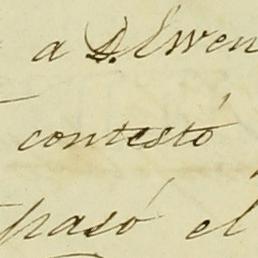 a D. Ewen
contestó
pasó el